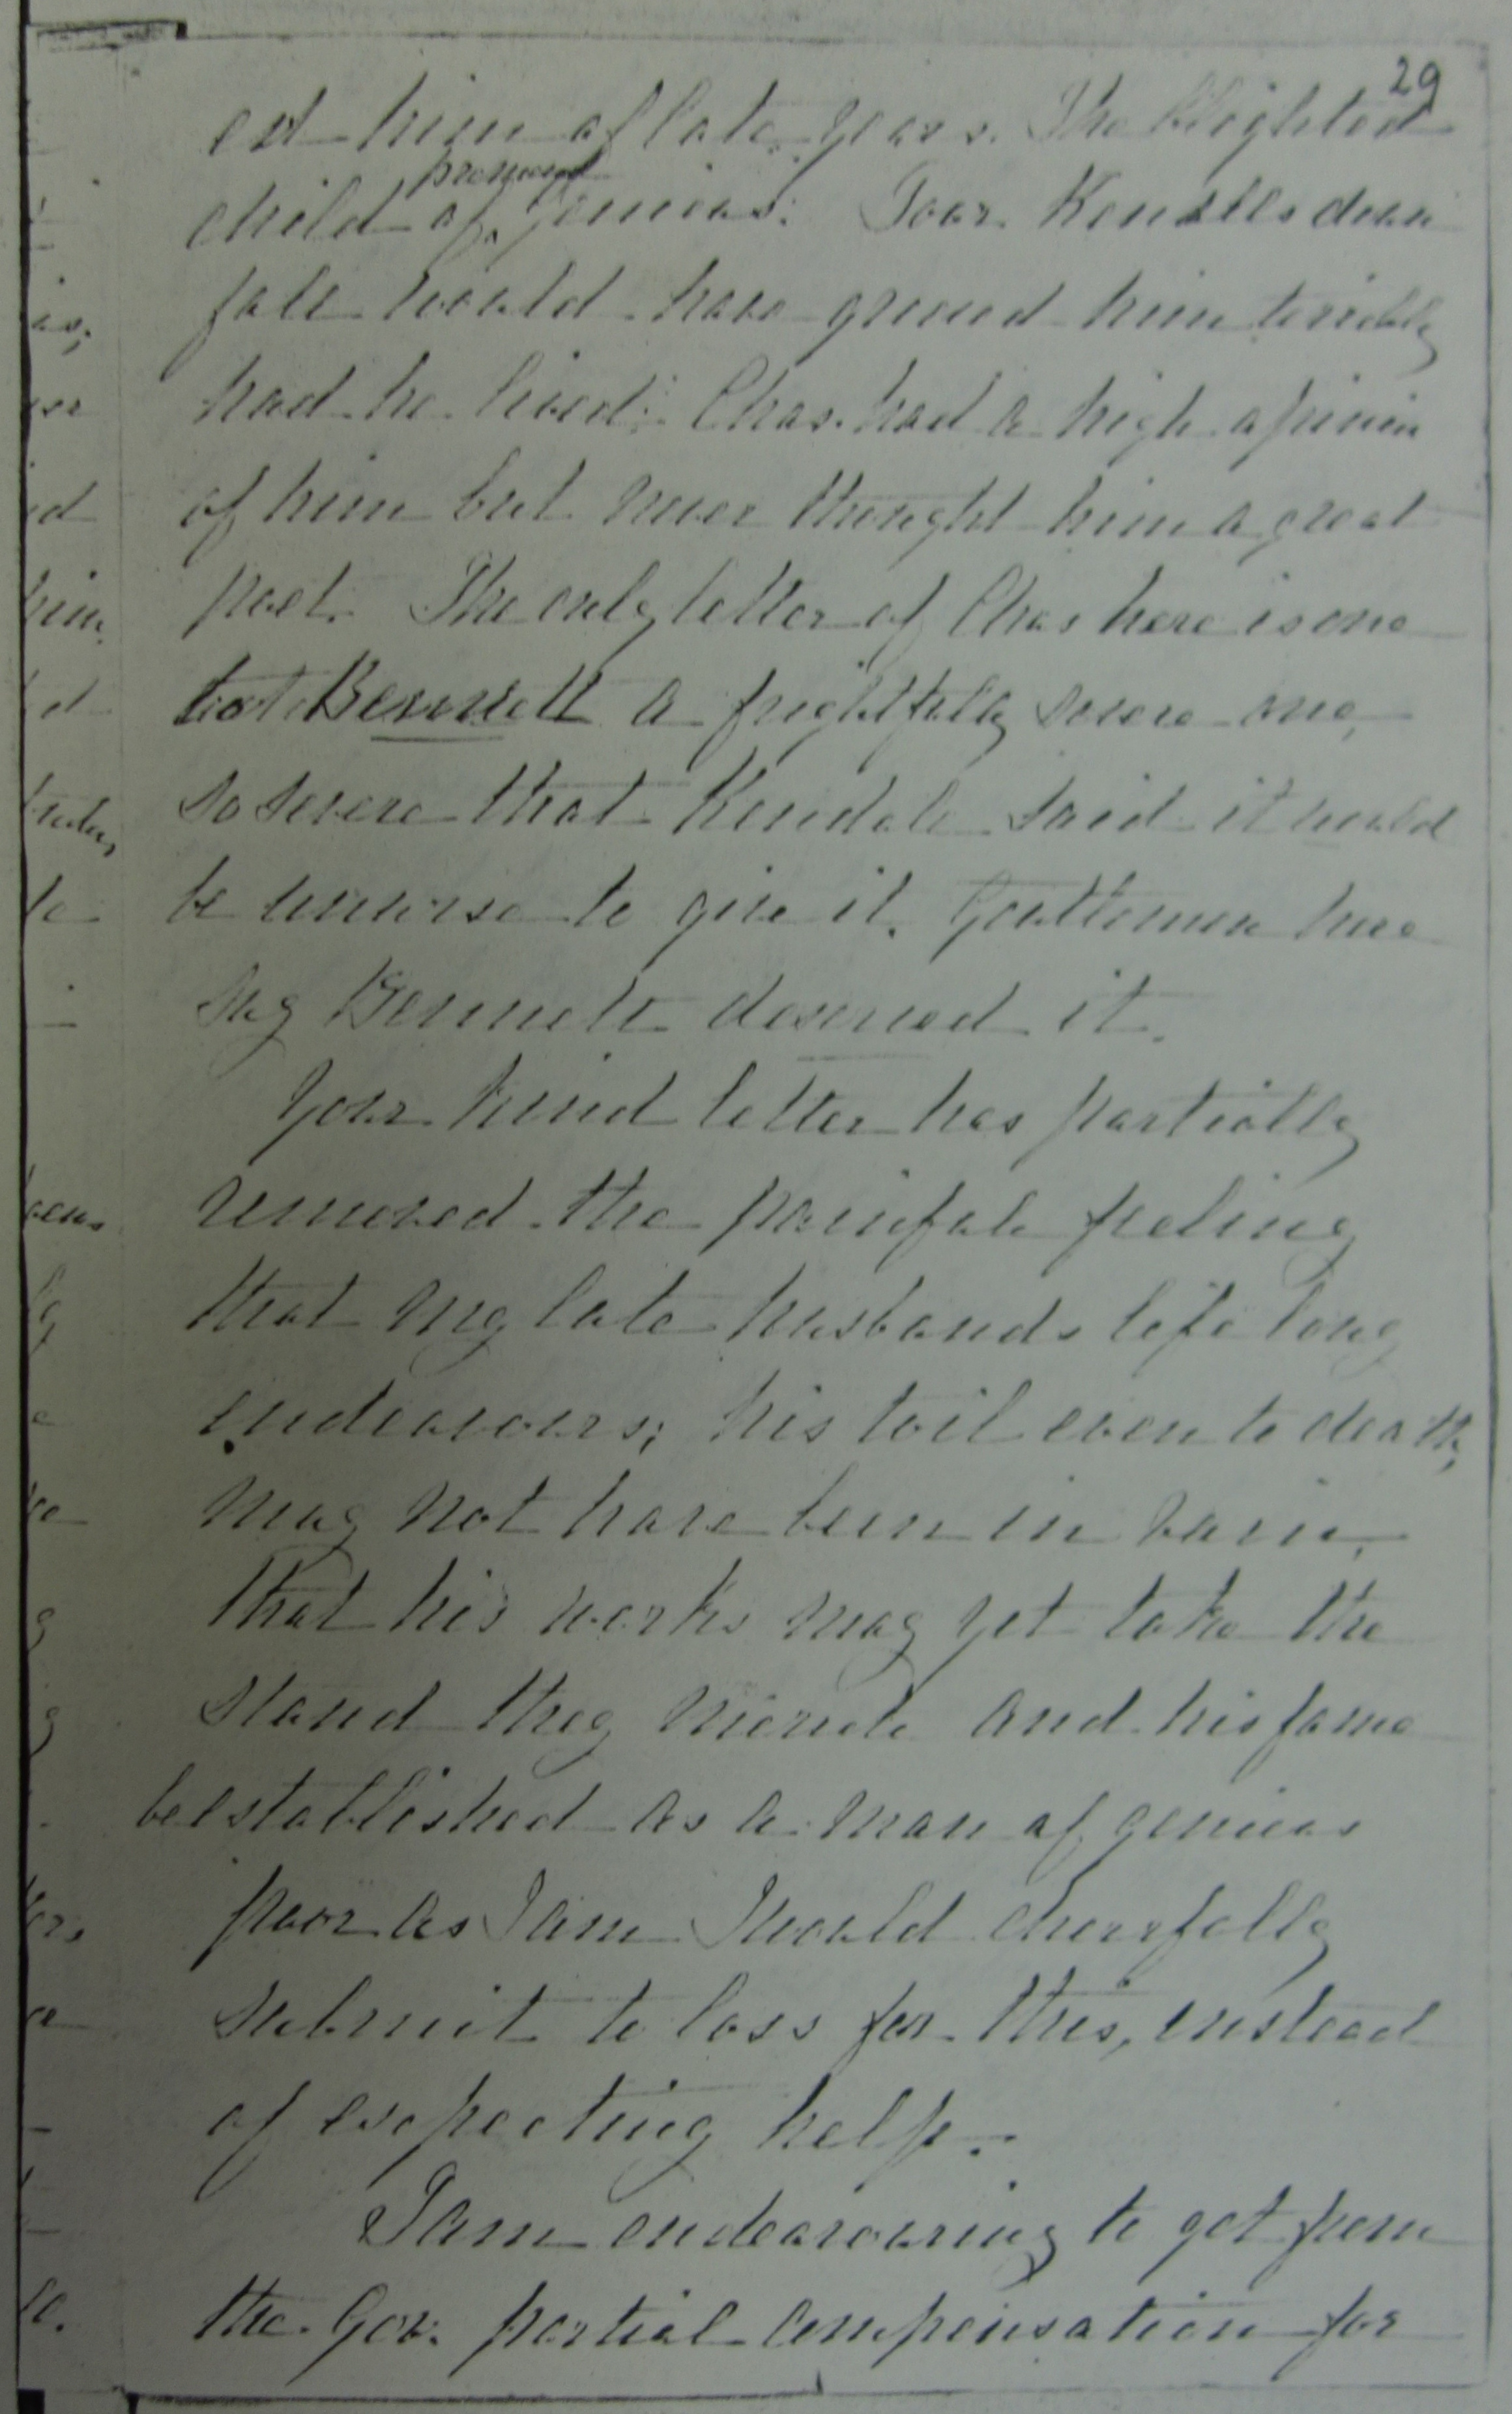 29
est him of late years. The blighted
child of promised genius. Poor Kendalls down
fall would have greived him terribly
had he lived. Chas. had a high opinion
of him but never thought him a great
poet. The only letter of Chas here is one
to Bennett a frightfully severe one,
so severe that Kendall said it would
be unwise to give it. Gentlemen here
say Bennett deserved it.
Your kind letter has partially
removed the painful feeling
that my late husbands life long
endeavours; his toil even to death,
may not have been in vain,
that his works may yet take the
stand they merit and his fame
be established as a man of genius
poor as I am I would cheerfully
submit to loss for this, instead
of expecting help.
I am endeavouring to get from
the Gov. partial compensation for